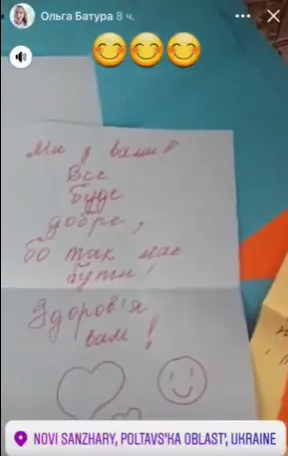 Ольга Батура 8 ч.
Ми з вами!
Все
буде
добре,
бо так має
бути!
Здоров'я
вам!
NOVI SANZHARY, POLTAVS'KA OBLAST', UKRAINE